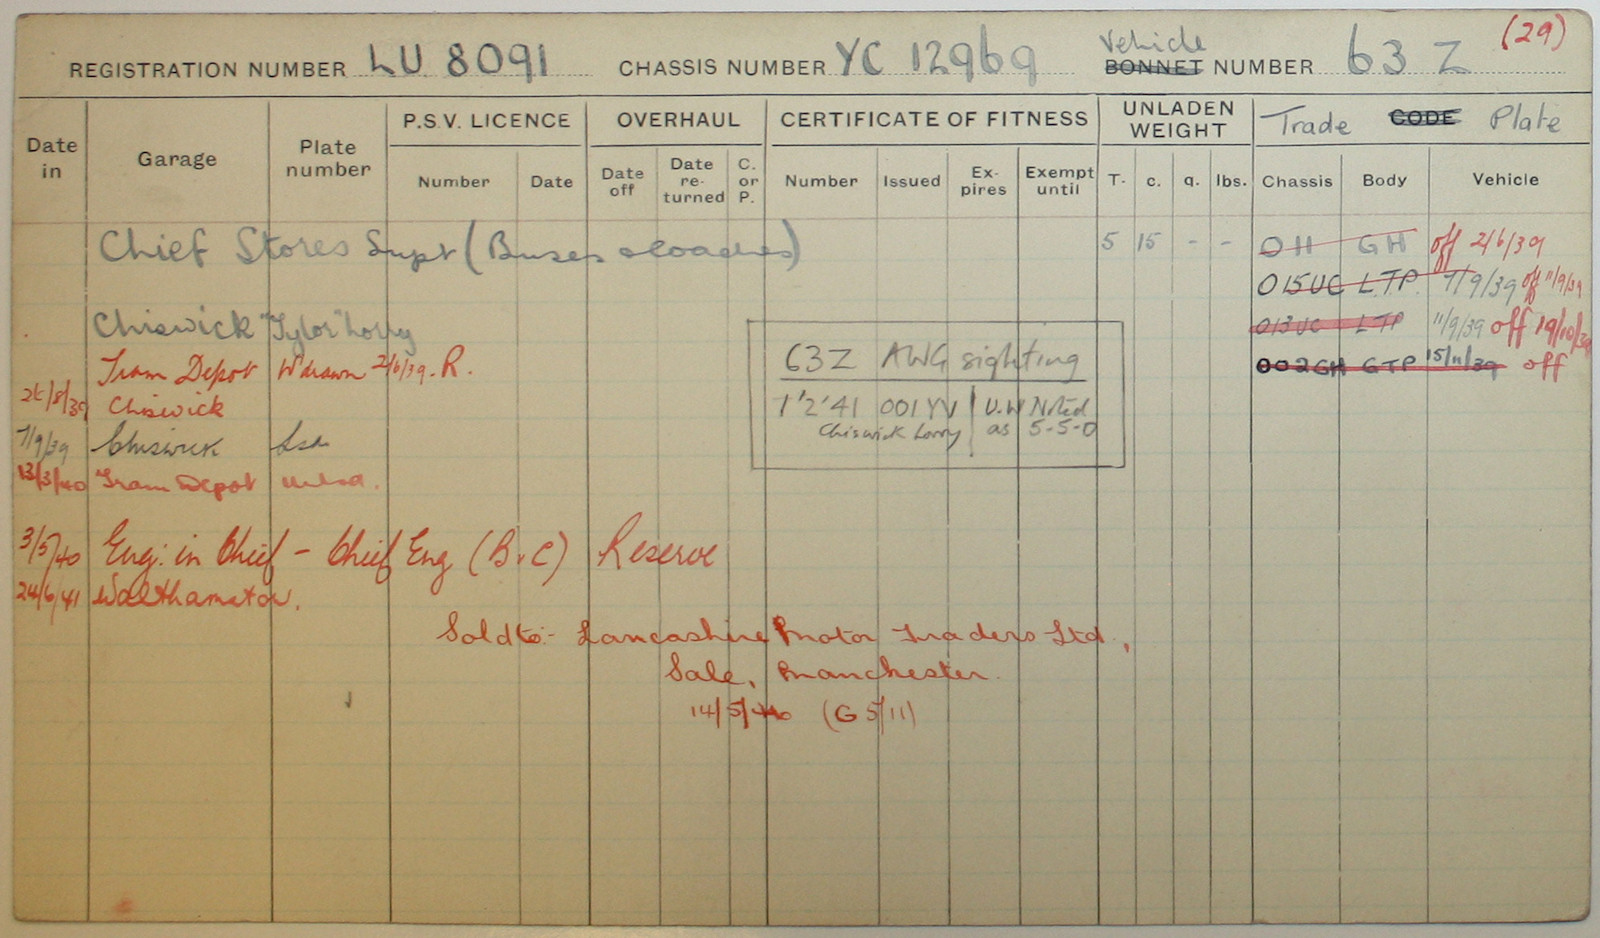 (29)
REGISTRATION NUMBER LU 8091 CHASSIS NUMBER YC 12969 Vehicle BONNET NUMBER 63 Z
Date in Garage Plate number P.S.V. LICENCE OVERHAUL CERTIFICATE OF FITNESS UNLADEN WEIGHT Trade CODE Plate
Number Date Date off Date re-turned C. or P. Number Issued Ex-pires Exempt until T. c. q. lbs. Chassis Body Vehicle
Chief Stores Supt (Buses & coaches) 5 15 - - OH GH off 2/6/39
015UC LTP 7/9/39 off 11/9/39
Chiswick "Tylor" Lorry 013UC LTP 11/9/39 off 19/10/39
Tram Depot W'drawn 2/6/39. R. 002GH GTP 15/11/39 off
63Z AWG sighting
Chiswick
1'2'41 001YV U.W Noted
Chiswick Lorry as 5-5-0
7/9/39 Chiswick Lsd
13/3/40 Tram Depot unlsd.
3/5/40 Eng. in Chief - Chief Eng (B & C) Reserve
24/6/41 Walthamstow.
Sold to:- Lancashire Motor Traders Ltd,
Sale, Manchester.
14/5/ (G 5/11)